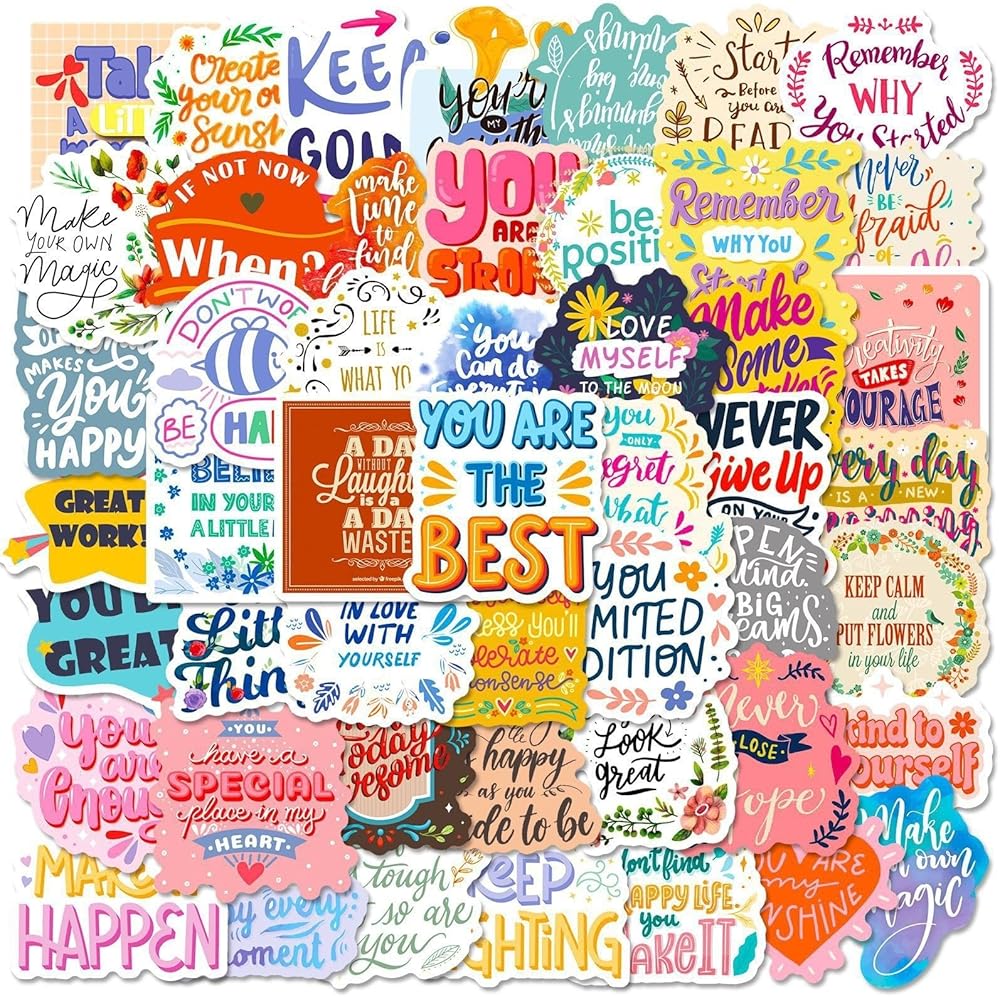 Take
A LITTLE
Create
your own
Sunshine
KEEP
GOING
you're
MY
Start
Before
you are
READY
Remember
WHY
You Started
Make
YOUR OWN
Magic
IF NOT NOW
When?
make
time
to
find
YOU
ARE
STRONG
be
positive
Remember
WHY YOU
Started
Never
BE
Afraid
OF
MAKES
You
HAPPY
DON'T WORRY
BE HAPPY
LIFE
IS
WHAT YOU
You
Can do
Everything
I LOVE
MYSELF
TO THE MOON
Make
Some
Creativity
TAKES
COURAGE
GREAT
WORK!
BELIEVE
IN YOUR
A LITTLE
A DAY
WITHOUT
Laughter
is a
A DAY
WASTED
selected by freepik
YOU ARE
THE
BEST
you
ONLY
regret
what
NEVER
Give Up
ON YOUR
Every day
IS A NEW
YOU'RE
GREAT
Little
Things
IN LOVE
WITH
YOURSELF
less YOU'll
tolerate
nonsense
YOU
LIMITED
EDITION
OPEN
Mind.
BIG
Dreams
KEEP CALM
and
PUT FLOWERS
in your life
You
are
Enough
YOU
have a
SPECIAL
place in my
HEART
today
awesome
happy
as you
decide to be
Look
great
Never
LOSE
Hope
Kind to
yourself
MAKE
HAPPEN
every
moment
tough
so are
you
KEEP
FIGHTING
don't find
HAPPY LIFE.
you
MAKE IT
YOU ARE
my
SUNSHINE
Make
own
Magic